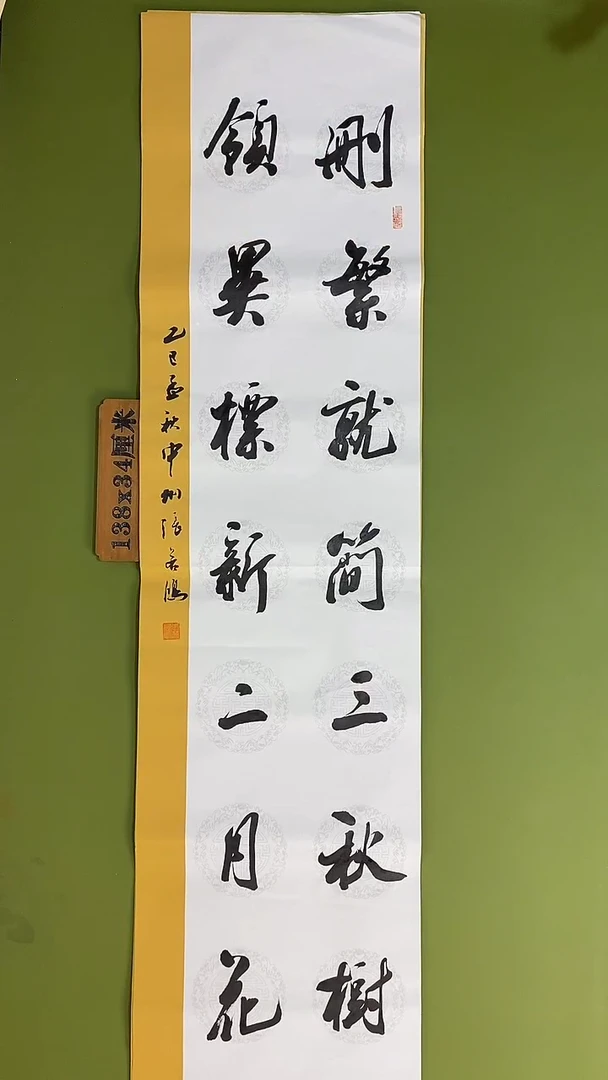 刪繁就简三秋樹
領異標新二月花
乙巳孟秋申州張若鴻
138x34厘米